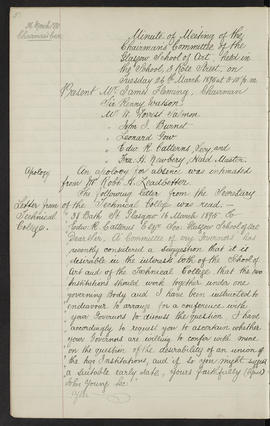 Minute of Meeting of the
Chairman's Committee of the
Glasgow School of Art, held in
the School, 3 Rose Street, on
Tuesday 26th March 1895 at
Present Mr. James Fleming, Chairman
Sir Henry Watson
Mr. W. Forrest Salmon
John J. Burnet
Leonard Gow
Edw R. Catterns, Secy and
Fra. H. Newbery, Head Master.
Apology
An apology for absence was intimated
from Mr. Robt A.
Letter from
Technical
College.
The following letter from the Secretary
of the Technical College was read:-
38 Bath St. Glasgow 16 March 1895
Edw R. Catterns Esqre Sec. Glasgow School of Art
Dear Sir, A Committee of my Governors has
recently considered a suggestion that it is
desirable in the interests both of the School of
Art and of the Technical College that the two
Institutions should work together under one
governing Body and I have been instructed to
endeavour to arrange for a conference with
your Governors to discuss the question. I have
accordingly to request you to ascertain whether
your Governors are willing to confer with mine
on the question of the desirability of an union of
the two Institutions, and if so you might suggest
a suitable early date, Yours faithfully (Signed)
John Young Sec.